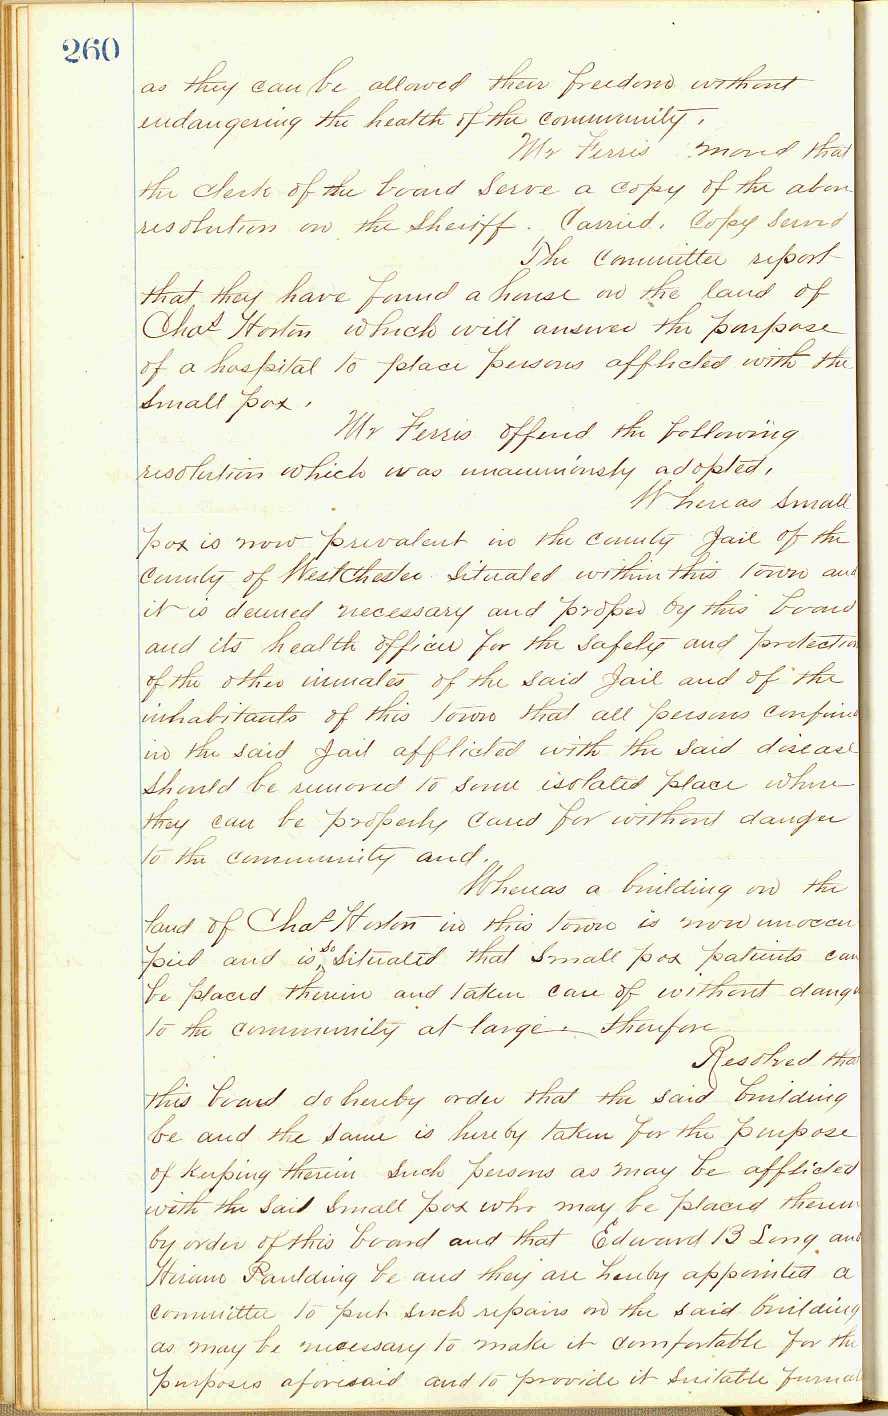 260
as they can be allowed their freedom without
endangering the health of the community.
Mr Ferris moved that
the clerk of the board serve a copy of the above
resolution on the Sheriff. Carried. Copy Served
The committee report
that they have found a house on the land of
Chas Horton which will answer the purpose
of a hospital to place persons afflicted with the
Small pox.
Mr Ferris offered the following
resolution which was unanimously adopted.
Whereas Small
pox is now prevalent in the county Jail of the
County of Westchester situated within this town and
it is deemed necessary and proper by this board
and its health officer for the safety and protection
of the other inmates of the said Jail and of the
inhabitants of this town that all persons confined
in the said Jail afflicted with the said disease
should be removed to some isolated place where
they can be properly cared for without danger
to the community and.
Whereas a building on the
land of Chas Horton in this town is now unoccu
pied and is so situated that Small pox patients can
be placed therein and taken care of without danger
to the community at large. therefore
Resolved that
this board do hereby order that the said building
be and the same is hereby taken for the purpose
of keeping therein such persons as may be afflicted
with the said Small pox who may be placed therein
by order of this board and that Edward B Long and
Hiram Paulding be and they are hereby appointed a
committee to put such repairs on the said building
as may be necessary to make it comfortable for the
purposes aforesaid and to provide it suitable furnat